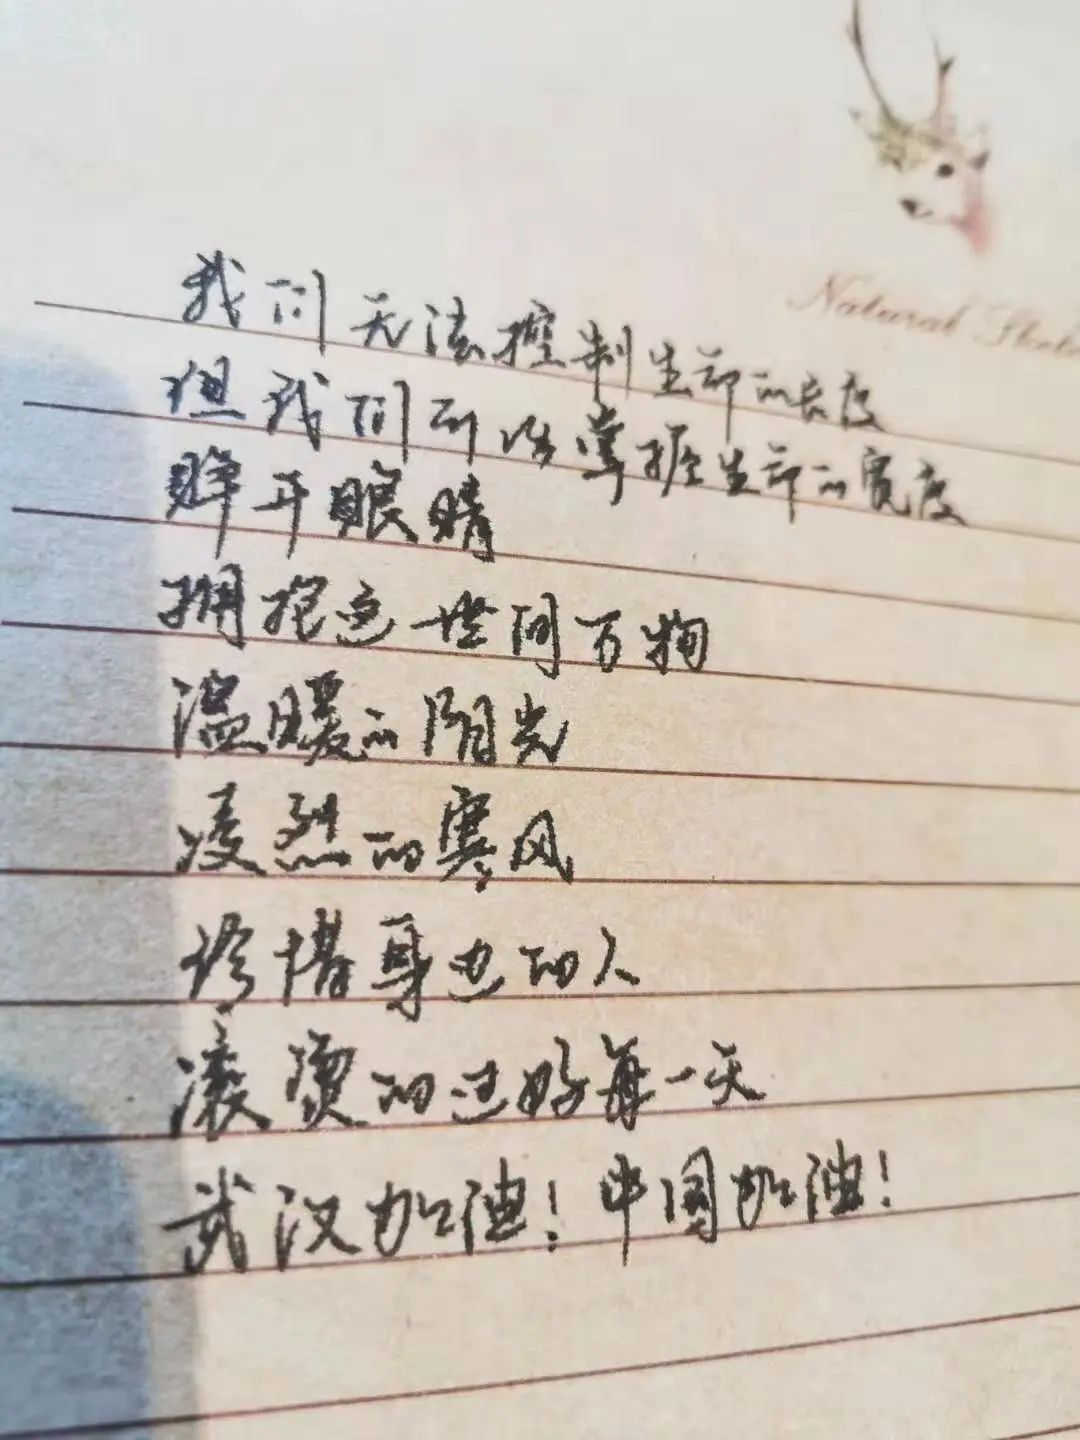 Natural
我们无法控制生命的长度
但我们可以掌握生命的宽度
睁开眼睛
拥抱这世间万物
温暖的阳光
凌烈的寒风
珍惜身边的人
滚烫的过好每一天
武汉加油!中国加油!